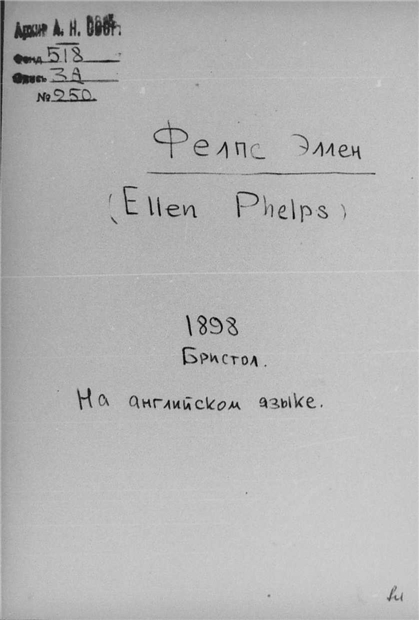 Архив А. Н. СССР.
Фонд 518
Опись 3А
№ 250.
Фелпс Эллен
(Ellen Phelps)
1898
Бристол.
На английском языке.